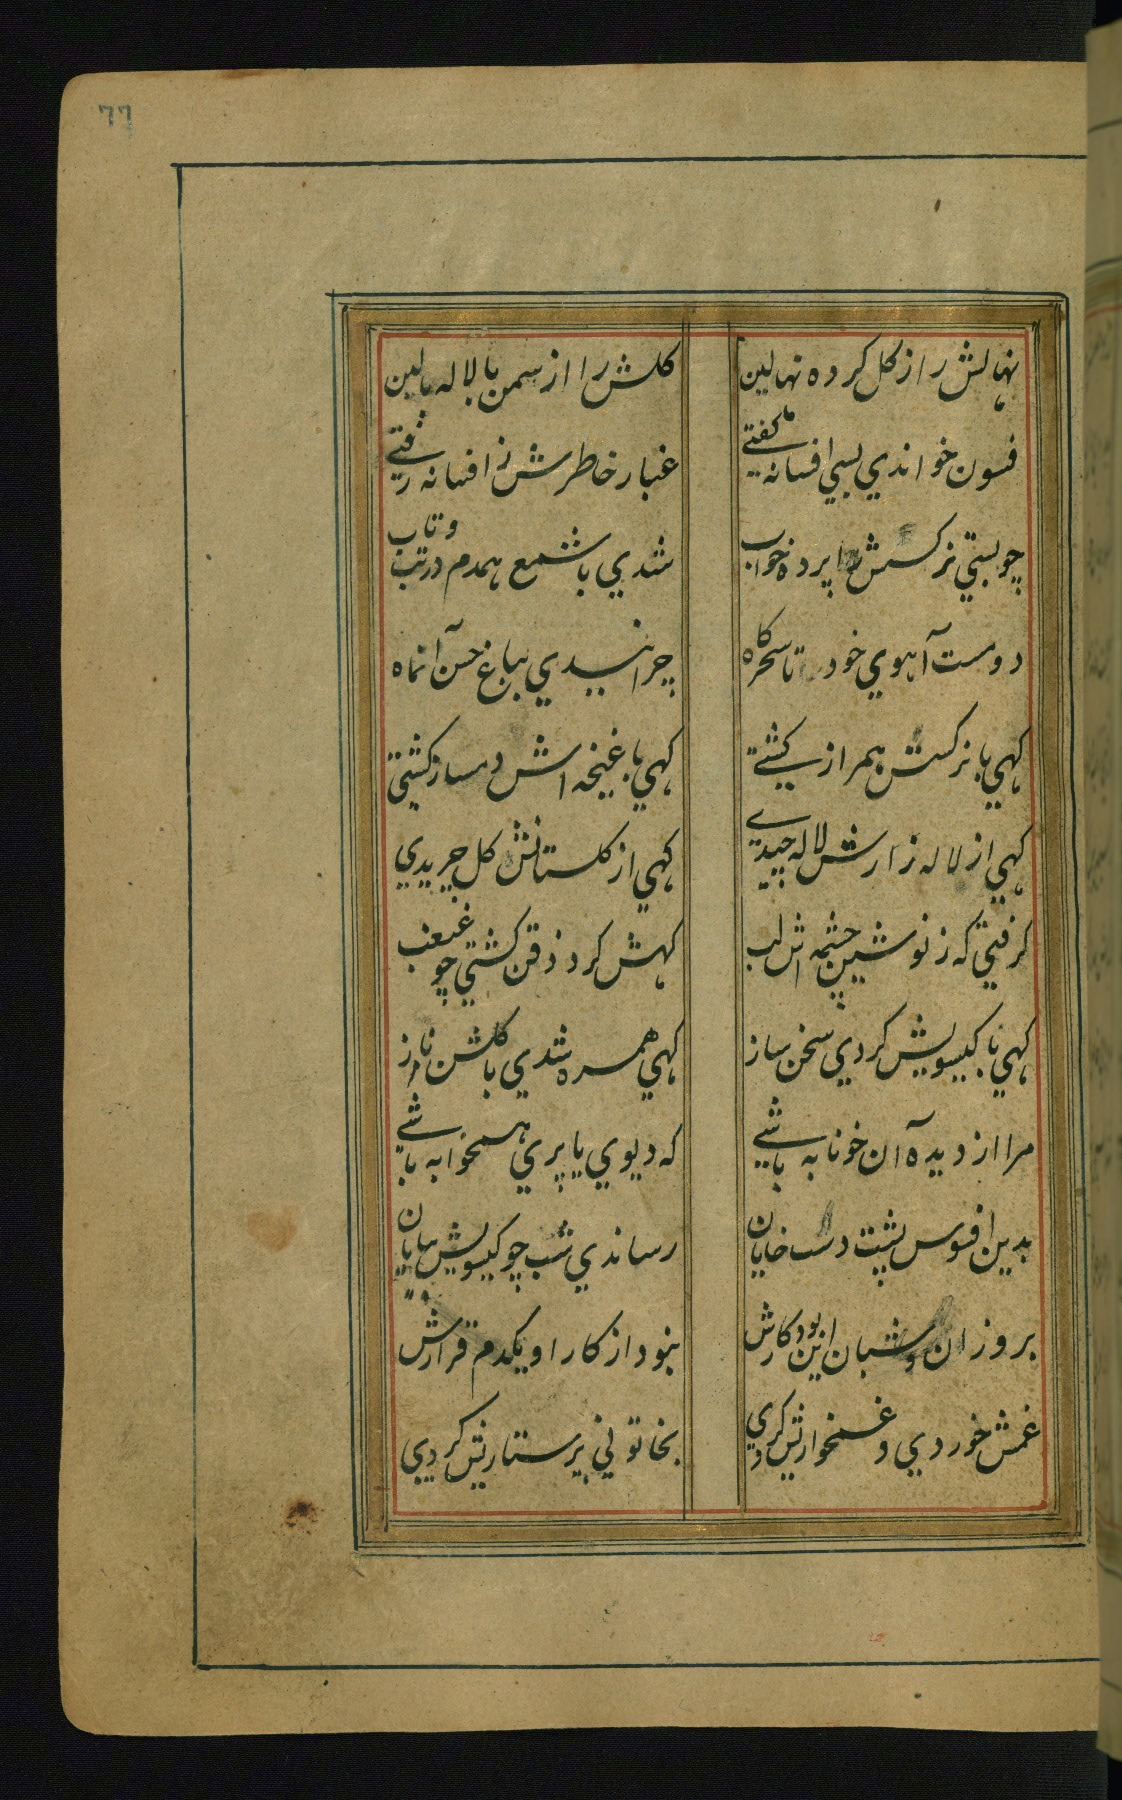 ٦٦
نهالش را ز کل کرده نهالین کلش را از سمن بالاله بالین
فسون خواندي بسي افسانها کفتے غبار خاطرش ز افسانه رفتے
چو بستي نرکسش را پرده خواب شدي با شمع همدم در تب و تاب
دو مست آهوي خود تا سحرکاه چرانیدي بباغ حسن آنماه
کهي با نرکسش همراز کشتے کهي با غنچه اش دمساز کشتي
کهي از لاله زارش لاله چیدے کهي از کلستانش کل چریدي
کرفتي که ز نوشین چشمه اش لب کهش کرد ذقن کشتي چو غبغب
کهي با کیسویش کردي سخن ساز کهي همره شدي با کلشن ناز
مرا از دیده آن خونابه باشے که دیوي یا پري همخوابه باشے
بدین افسوس پشت دست خایان رساندي شب چو کیسویش بپایان
بروزان و شبان این بود کارش نبود از کار او یکدم قرارش
غمش خوردي و غمخوارش کردي بخاتوني پرستارش کردي